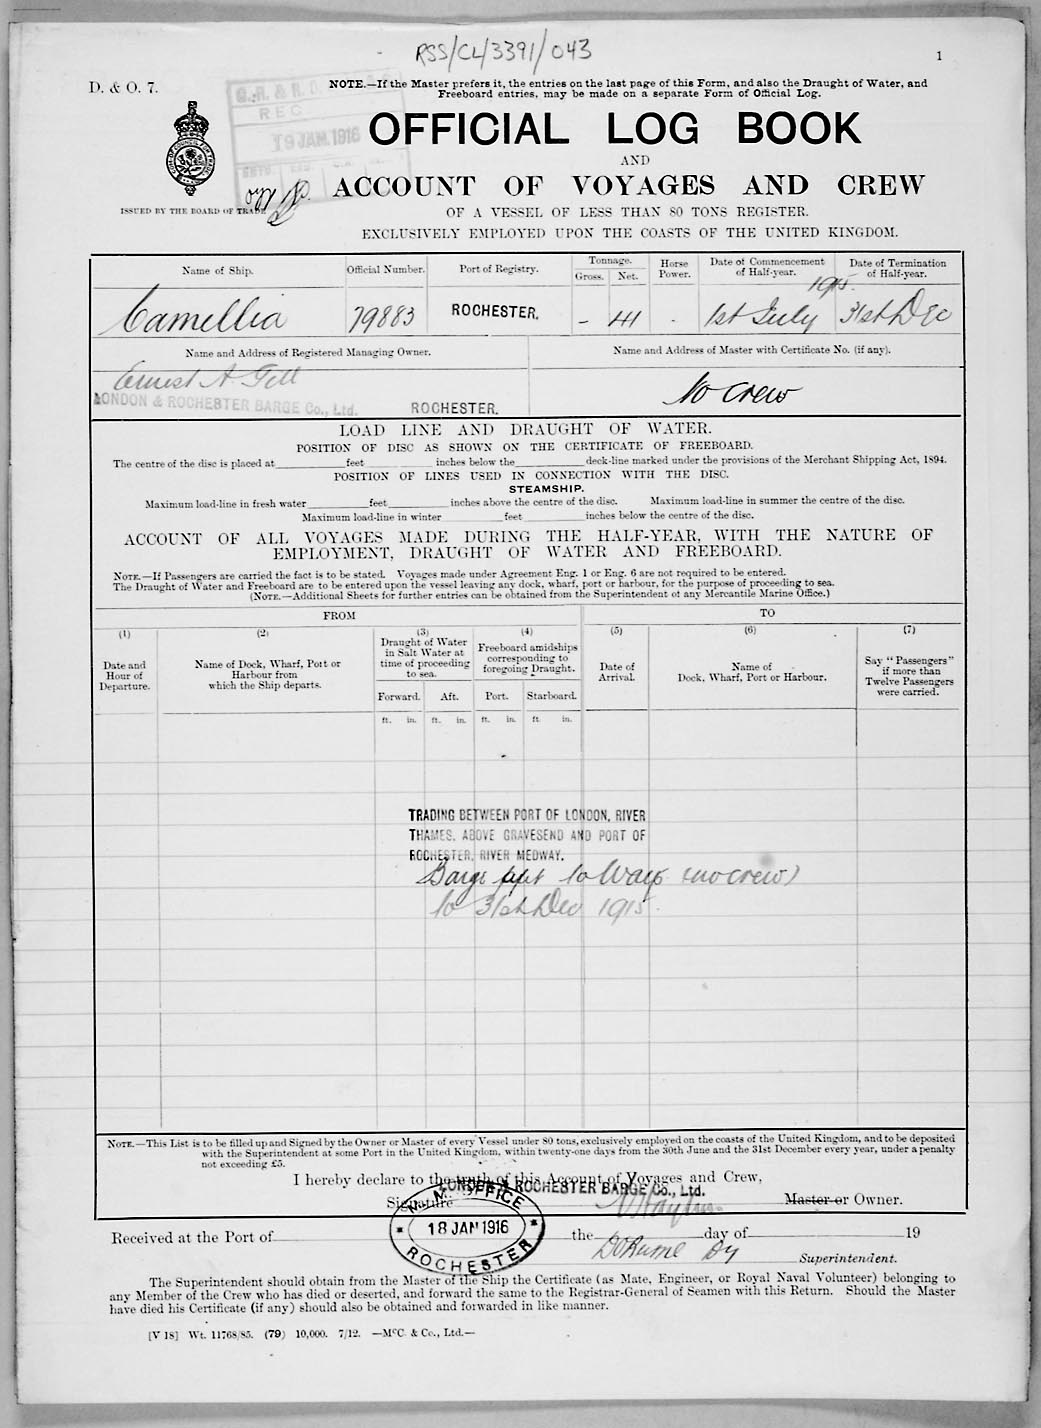 RSS/CL/3391/043
1
D. & O. 7.
NOTE.—If the Master prefers it, the entries on the last page of this Form, and also the Draught of Water, and
Freeboard entries, may be made on a separate Form of Official Log.
REC
19 JAN. 1916
OFFICIAL LOG BOOK
AND
ACCOUNT OF VOYAGES AND CREW
ISSUED BY THE BOARD OF TRADE
OF A VESSEL OF LESS THAN 80 TONS REGISTER.
EXCLUSIVELY EMPLOYED UPON THE COASTS OF THE UNITED KINGDOM.
Name of Ship. Official Number. Port of Registry. Tonnage. Gross. Net. Horse Power. Date of Commencement of Half-year. Date of Termination of Half-year.
1915.
Camellia 79883 ROCHESTER. - 41 - 1st July 31st Dec
Name and Address of Registered Managing Owner. Name and Address of Master with Certificate No. (if any).
Ernest A Gill
LONDON & ROCHESTER BARGE Co., Ltd. ROCHESTER. No crew
LOAD LINE AND DRAUGHT OF WATER.
POSITION OF DISC AS SHOWN ON THE CERTIFICATE OF FREEBOARD.
The centre of the disc is placed at feet inches below the deck-line marked under the provisions of the Merchant Shipping Act, 1894.
POSITION OF LINES USED IN CONNECTION WITH THE DISC.
STEAMSHIP.
Maximum load-line in fresh water feet inches above the centre of the disc. Maximum load-line in summer the centre of the disc.
Maximum load-line in winter feet inches below the centre of the disc.
ACCOUNT OF ALL VOYAGES MADE DURING THE HALF-YEAR, WITH THE NATURE OF
EMPLOYMENT, DRAUGHT OF WATER AND FREEBOARD.
NOTE.—If Passengers are carried the fact is to be stated. Voyages made under Agreement Eng. 1 or Eng. 6 are not required to be entered.
The Draught of Water and Freeboard are to be entered upon the vessel leaving any dock, wharf, port or harbour, for the purpose of proceeding to sea.
(NOTE.—Additional Sheets for further entries can be obtained from the Superintendent of any Mercantile Marine Office.)
FROM TO
(1) (2) (3) (4) (5) (6) (7)
Date and Hour of Departure.
Name of Dock, Wharf, Port or Harbour from which the Ship departs.
Draught of Water in Salt Water at time of proceeding to sea.
Freeboard amidships corresponding to foregoing Draught.
Date of Arrival.
Name of Dock, Wharf, Port or Harbour.
Say "Passengers" if more than Twelve Passengers were carried.
Forward. Aft. Port. Starboard.
ft. in. ft. in. ft. in. ft. in.
TRADING BETWEEN PORT OF LONDON, RIVER
THAMES, ABOVE GRAVESEND AND PORT OF
ROCHESTER, RIVER MEDWAY.
Barge (no crew)
to 31st Dec 1915.
NOTE.—This List is to be filled up and Signed by the Owner or Master of every Vessel under 80 tons, exclusively employed on the coasts of the United Kingdom, and to be deposited
with the Superintendent at some Port in the United Kingdom, within twenty-one days from the 30th June and the 31st December every year, under a penalty
not exceeding £5.
I hereby declare to the truth of this Account of Voyages and Crew,
LONDON & ROCHESTER BARGE Co., Ltd.
Signature Master or Owner.
M. M. OFFICE
18 JAN 1916
ROCHESTER
Received at the Port of the day of 19
Superintendent.
The Superintendent should obtain from the Master of the Ship the Certificate (as Mate, Engineer, or Royal Naval Volunteer) belonging to
any Member of the Crew who has died or deserted, and forward the same to the Registrar-General of Seamen with this Return. Should the Master
have died his Certificate (if any) should also be obtained and forwarded in like manner.
[V 18] Wt. 11768/85. (79) 10,000. 7/12. —McC. & Co., Ltd.—